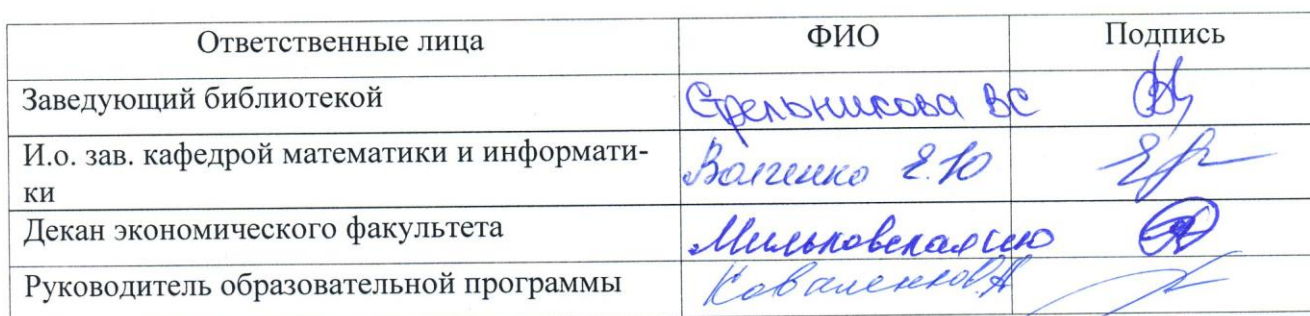 Ответственные лица ФИО Подпись
Заведующий библиотекой Стрельникова ВС
И.о. зав. кафедрой математики и информати-
ки Волченко Е.Ю
Декан экономического факультета
Руководитель образовательной программы